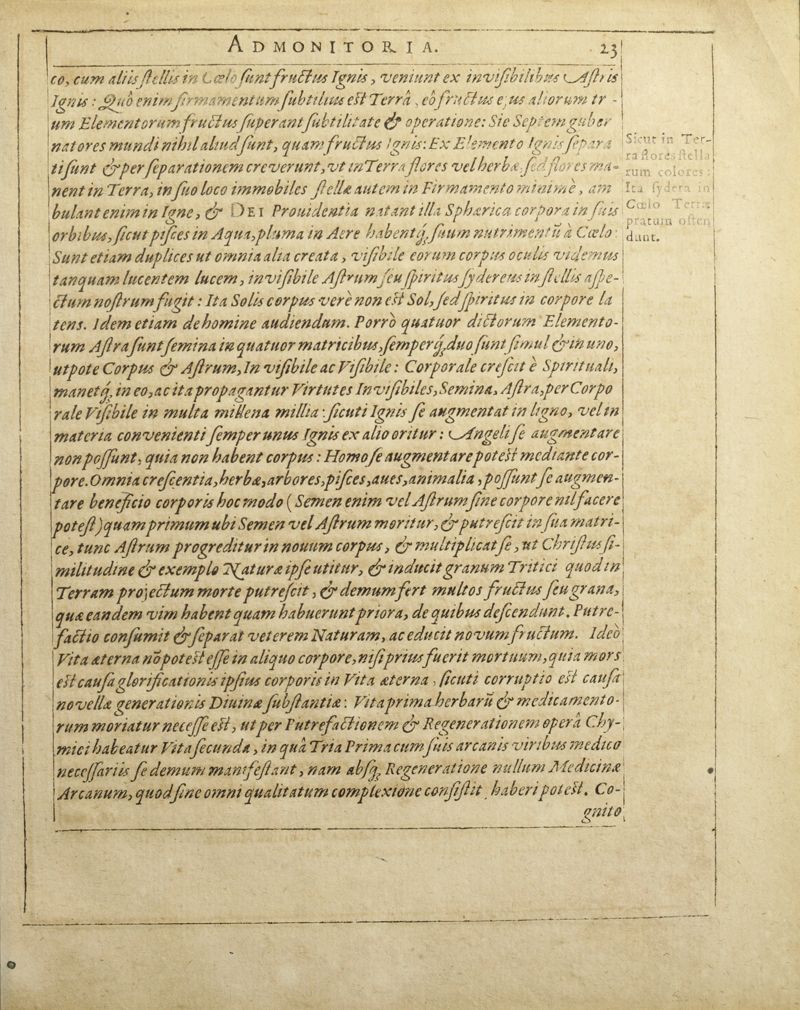 ADMONITORIA. 23
co, cum aliis ſtellis in Cœlo ſunt fructus Ignis, veniunt ex inviſibilibus Aſtris
Ignis: Quò enim firmamentum ſubtilius eſt Terrâ, eò fructus ejus aliorum tr-
um Elementorum fructus ſuperant ſubtilitate & operatione: Sic Septem guber
natores mundi nihil aliud ſunt, quam fructus Ignis: Ex Elemento Ignis ſepara
ti ſunt & per ſeparationem creverunt, vt in Terra flores vel herbæ, ſed flores ma-
nent in Terra, in ſuo loco immobiles ſtellæ autem in Firmamento minimè, am
bulant enim in Igne, & DEI Prouidentia natant illa Sphærica corpora in ſuis
orbibus, ſicut piſces in Aqua, pluma in Aere habentq́; ſuum nutrimentũ à Cœlo:
Sunt etiam duplices ut omnia alia creata, viſibile eorum corpus oculis videmus
tanquam lucentem lucem, inviſibile Aſtrum ſeu ſpiritus ſydereus in ſtellis aſpe-
ctum noſtrum fugit: Ita Solis corpus verè non eſt Sol, ſed ſpiritus in corpore la
tens. Idem etiam de homine audiendum. Porrò quatuor dictorum Elemento-
rum Aſtra ſunt ſemina in quatuor matricibus, ſemper q́; duo ſunt ſimul & in uno,
utpote Corpus & Aſtrum, In viſibile ac Viſibile: Corporale creſcit è Spirituali,
manetq́; in eo, ac ita propagantur Virtutes Inviſibiles, Semina, Aſtra, per Corpo
rale Viſibile in multa millena millia: ſicuti Ignis ſe augmentat in ligno, vel in
materia convenienti ſemper unus Ignis ex alio oritur: Angeli ſe augmentare
non poſſunt, quia non habent corpus: Homo ſe augmentare poteſt mediante cor-
pore. Omnia creſcentia, herbæ, arbores, piſces, aues, animalia, poſſunt ſe augmen-
tare beneficio corporis hoc modo (Semen enim vel Aſtrum ſine corpore nil facere
poteſt) quamprimum ubi Semen vel Aſtrum moritur, & putreſcit in ſua matri-
ce, tunc Aſtrum progreditur in nouum corpus, & multiplicat ſe, ut Chriſtus ſi-
militudine & exemplo Naturæ ipſe utitur, & inducit granum Tritici quod in
Terram projectum morte putreſcit, & demum fert multos fructus ſeu grana,
quæ eandem vim habent quam habuerunt priora, de quibus deſcendunt. Putre-
factio conſumit & ſeparat veterem Naturam, ac educit novum fructum. Ideò
Vita æterna nõ poteſt eſſe in aliquo corpore, niſi prius fuerit mortuum, quia mors
eſt cauſa glorificationis ipſius corporis in Vita æterna, ſicuti corruptio eſt cauſa
novellæ generationis Diuinæ ſubſtantiæ: Vita prima herbarũ & medicamento-
rum moriatur neceſſe eſt, ut per Putrefactionem & Regenerationem operâ Chy-
mici habeatur Vita ſecunda, in quâ Tria Prima cum ſuis arcanis viribus medico
neceſſariis ſe demum manifeſtant, nam abſq́; Regeneratione nullum Medicinæ
Arcanum, quod ſine omni qualitatum complexione conſiſtit, haberi poteſt. Co-
gnito
Sicut in Ter-
ra flores ſtella
rum colores:
Ita ſydera in
Cœlo Terræ
pratum oſten
dunt.